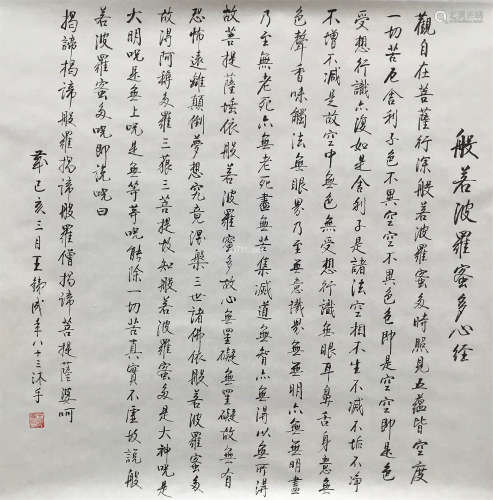 般若波羅蜜多心經
觀自在菩薩行深般若波羅蜜多時照見五蘊皆空度
一切苦厄舍利子色不異空空不異色色即是空空即是色
受想行識亦復如是舍利子是諸法空相不生不滅不垢不淨
不增不減是故空中無色無受想行識無眼耳鼻舌身意無
色聲香味觸法無眼界乃至無意識界無無明亦無無明盡
乃至無老死亦無老死盡無苦集滅道無智亦無得以無所得
故菩提薩埵依般若波羅蜜多故心無罣礙無罣礙故無有
恐怖遠離顛倒夢想究竟涅槃三世諸佛依般若波羅蜜多
故得阿耨多羅三藐三菩提故知般若波羅蜜多是大神咒是
大明咒是無上咒是無等等咒能除一切苦真實不虛故說般
若波羅蜜多咒即說咒曰
揭諦揭諦般羅揭諦般羅僧揭諦菩提薩婆呵
歲己亥三月王成年八十三沐手